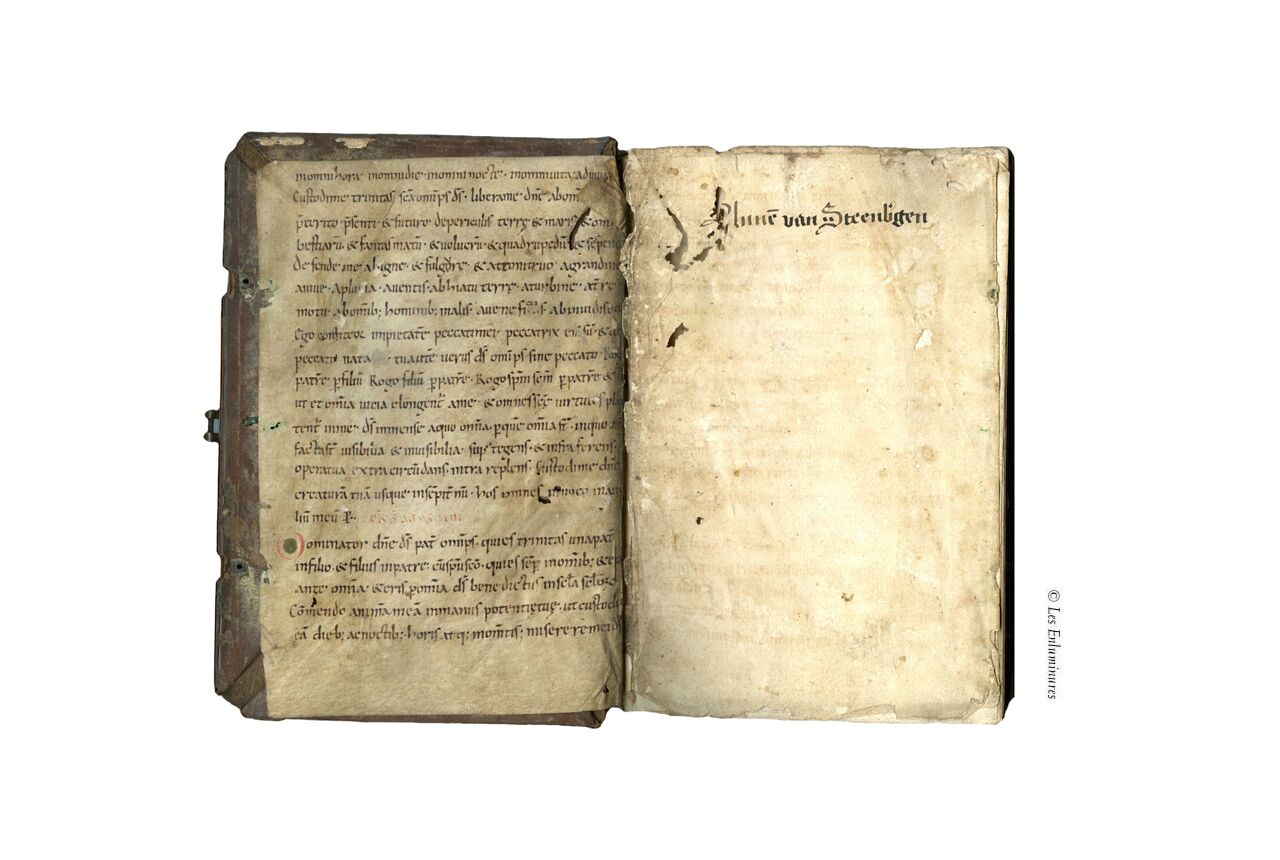 inomnihora · inomnidie · inomninocte · inomniuita adiuua
Custodime trinitas sc̄a om̄ps d̄s · liberame dn̄e abom
p̄terito p̄senti & futuro depericulis terrę & maris &om
bestiarū & fantasmatū · & uolucrū & quadrupedū & serpen
Defende me abigne · & fulgore · & attonitruo agrandine
aniue · apluuia · auentis · abhiatu terrę aturbine · at̄re
motu · abomib; hominib; malis · auenefi
Ego confiteor inpietatē peccatimei peccatrix
peccatū nata uerus d̄s om̄ps sine peccato
patrē p̄filiū · Rogo filiū p̄patrē · Rogosp̄m sc̄m p̄patrē &
ut et om̄ia uicia elongent̄ ame · & omnessc̄ę uirtutes pl
tent̄ inme · d̄s inmense aquo om̄ia · p̄quē omnia fc̄a · inquo
factasf̄ uisibilia & inuisibilia · sup̄ tegens · & infra ferens
operatua extra circūdans · intra replens · Custodime dn̄e
creaturā tuā usque inse͂pit̄nū · hos omnes inuoco
liū meū
Dominator dn̄e d̄s pat̄ om̄ps · quies trinitas unapat̄
infilio & filius inpatre · cūsp̄usc̄o · quies semp̄ inomib; &
ante om̄ia · &eris p̄om̄ia d̄s benedictus insc̄la sc̄lorē
Cōmendo animā meā inmanus potentiętuę · ut custodi
eā dieb; acnoctib; · horis atq; mom̄tis; miserere mei
van Steenb̄gen
© Les Enluminures